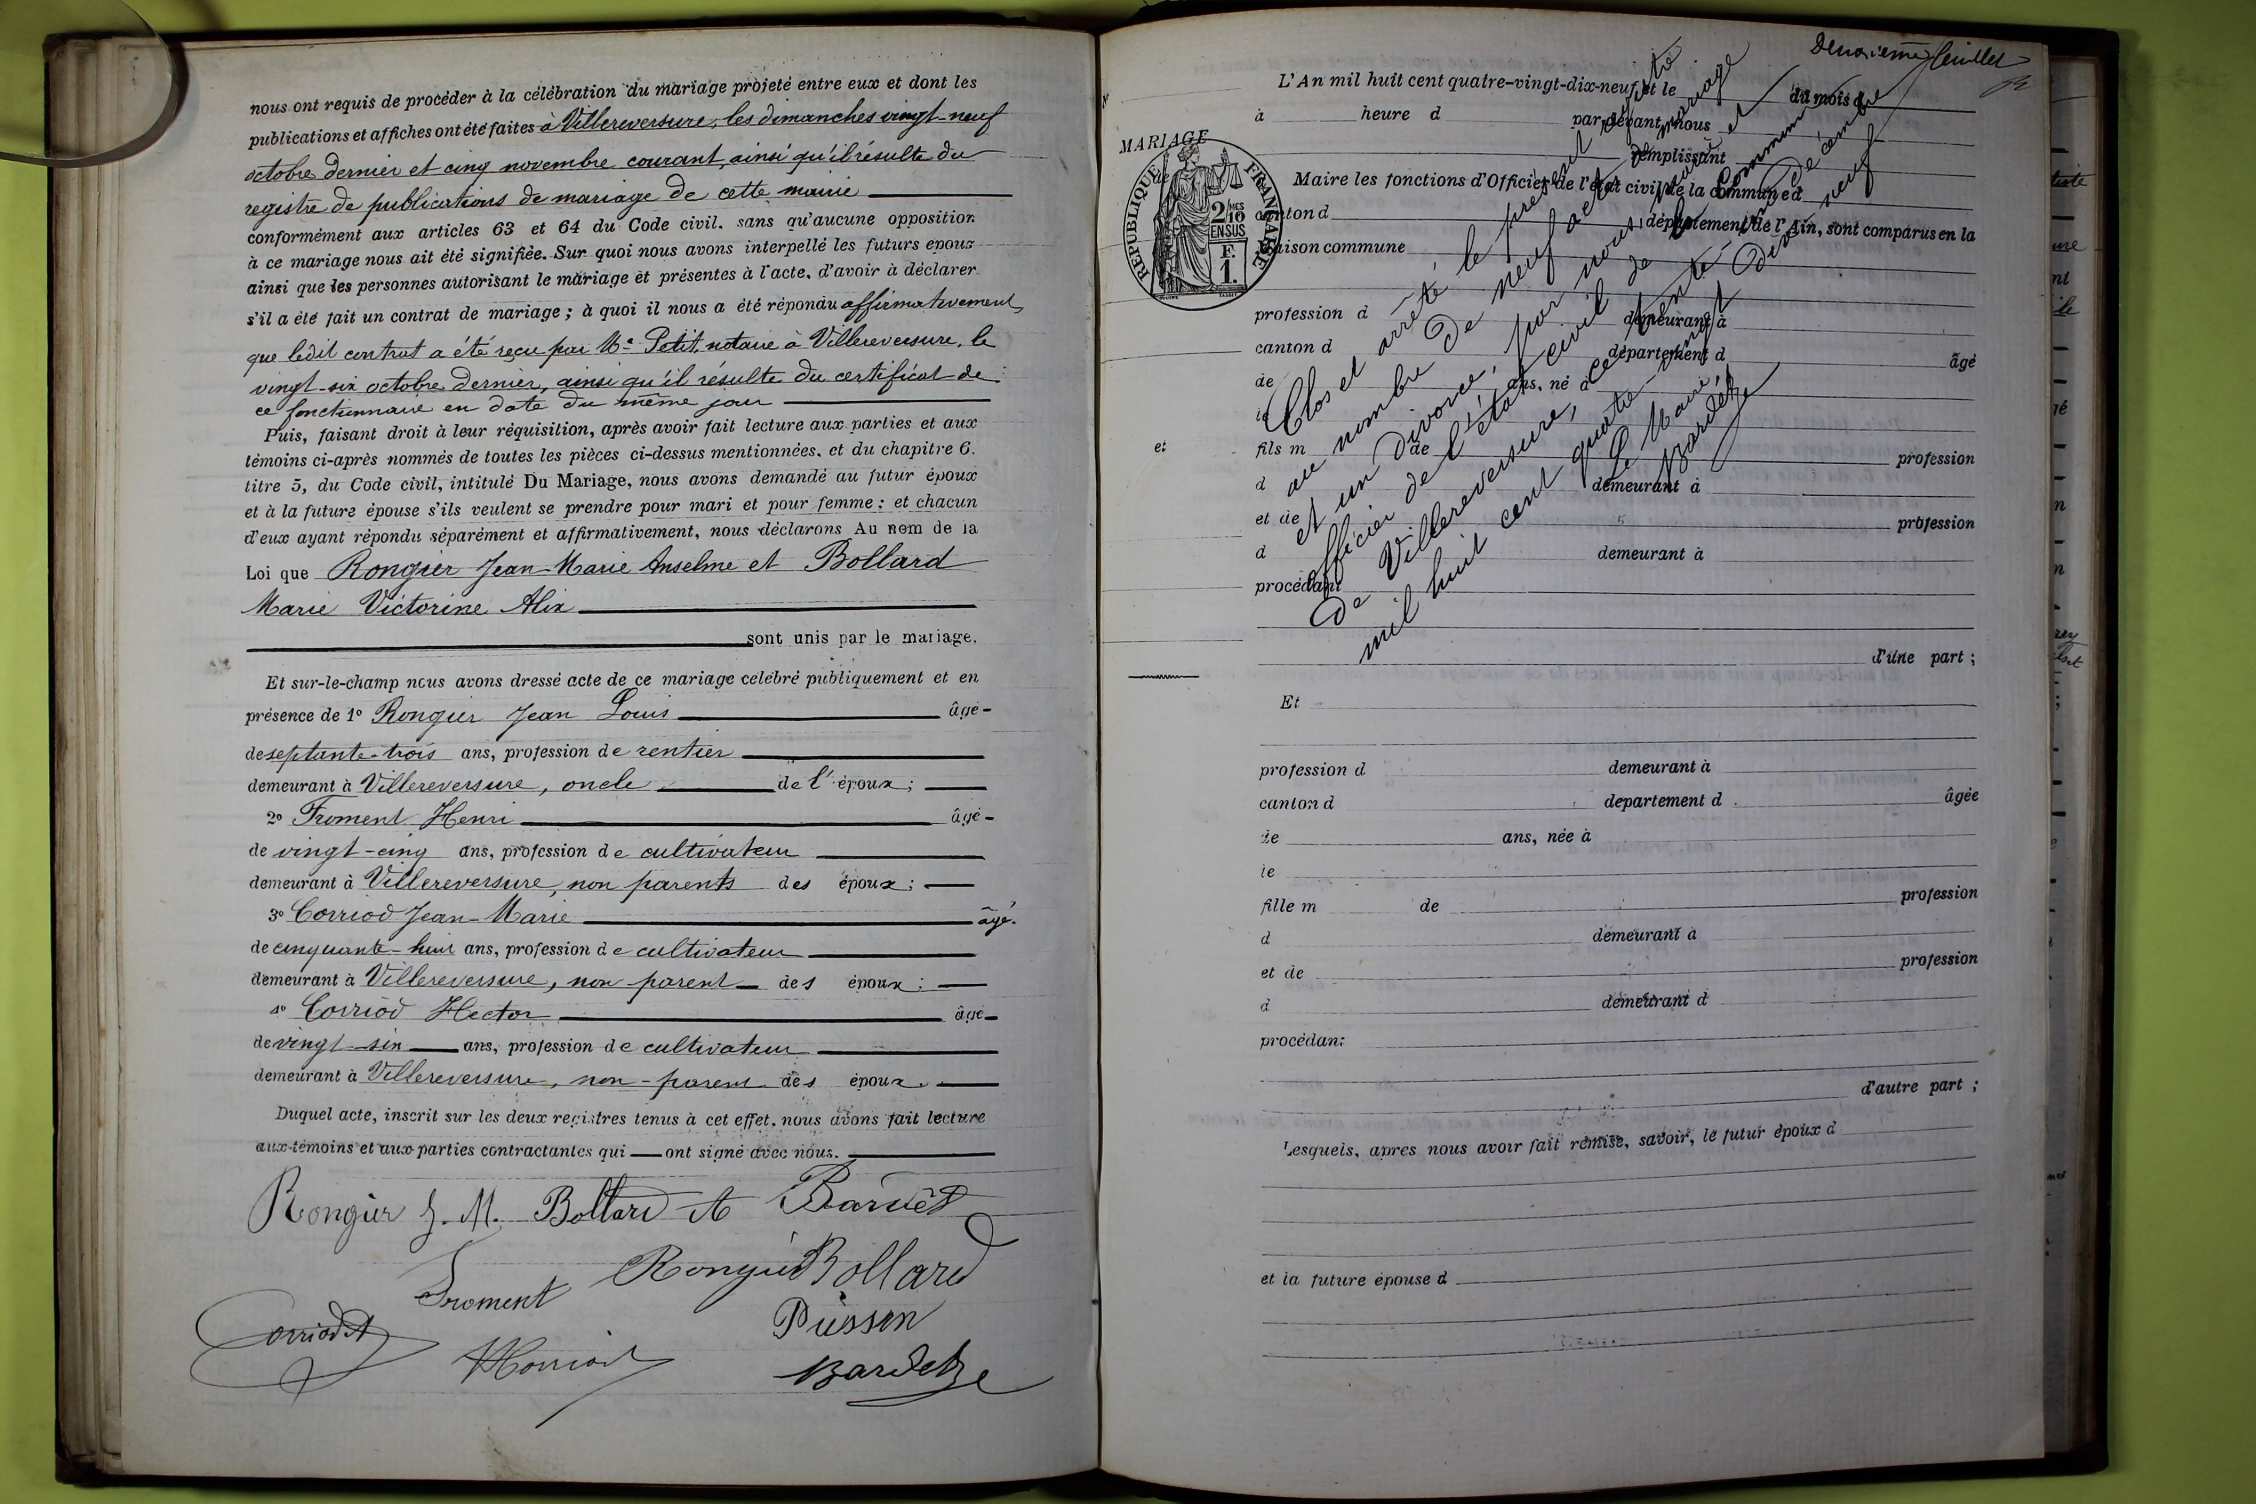 nous ont requis de procéder à la célébration du mariage projeté entre eux et dont les
publications et affiches ont été faites à Villereversure, les dimanches vingt-neuf
octobre dernier et cinq novembre courant, ainsi qu'il résulte du
registre de publications de mariage de cette mairie
conformément aux articles 63 et 64 du Code civil. sans qu'aucune opposition
à ce mariage nous ait été signifiée. Sur quoi nous avons interpellé les futurs époux
ainsi que les personnes autorisant le mariage et présentes à l'acte, d'avoir à déclarer
s'il a été fait un contrat de mariage ; à quoi il nous a été répondu affirmativement,
que ledit contrat a été reçu par Me Petit, notaire à Villereversure, le
vingt-six octobre dernier, ainsi qu'il résulte du certificat de
ce fonctionnaire en date du même jour
Puis, faisant droit à leur réquisition, après avoir fait lecture aux parties et aux
témoins ci-après nommés de toutes les pièces ci-dessus mentionnées. et du chapitre 6.
titre 5, du Code civil, intitulé Du Mariage, nous avons demandé au futur époux
et à la future épouse s'ils veulent se prendre pour mari et pour femme : et chacun
d'eux ayant répondu séparément et affirmativement, nous déclarons Au nom de la
Loi que Rongier Jean-Marie Anselme et Bollard
Marie Victorine Alix
sont unis par le mariage.
Et sur-le-champ nous avons dressé acte de ce mariage célébré publiquement et en
présence de 1° Rongier Jean Louis âgé
de septante-trois ans, profession de rentier
demeurant à Villereversure, oncle de l'époux ;
2° Froment Henri âgé
de vingt-cinq ans, profession de cultivateur
demeurant à Villereversure, non parents des époux ;
3° Corriod Jean-Marie âgé.
de cinquante-huit ans, profession de cultivateur
demeurant à Villereversure, non-parent des époux ;
4° Corriod Hector âgé
de vingt-six ans, profession de cultivateur
demeurant à Villereversure, non-parent des époux.
Duquel acte, inscrit sur les deux registres tenus à cet effet, nous avons fait lecture
aux témoins et aux parties contractantes qui ont signé avec nous.
Rongier J. M. Bollard A
Froment Rongier Bollard
Bardet
Deuxième feuillet
L'An mil huit cent quatre-vingt-dix-neuf et le du mois d
à heure d par devant nous
remplissant
MARIAGE
RÉPUBLIQUE FRANÇAISE
2/10 MES
EN SUS
F.
1.
Maire les fonctions d'Officier de l'état civil de la commune d
canton d département de l'Ain, sont comparus en la
maison commune
profession d demeurant à
canton d département d âgé
de ans, né à
le
et fils m de profession
d demeurant à
et de profession
d demeurant à
procédant
d'une part ;
Clos et arrêté le présent registre
au nombre de neuf actes de mariage
et un divorce, par nous, maire et
officier de l'état civil de la commune
de Villereversure, ce trente-un décembre
mil huit cent quatre-vingt dix neuf
Le Maire,
Et
profession d demeurant à
canton d departement d âgée
de ans, née à
le
fille m de profession
d demeurant à
et de profession
d demeurant d
procédant
d'autre part ;
Lesquels, apres nous avoir fait remise, savoir, le futur époux d
et la future épouse d